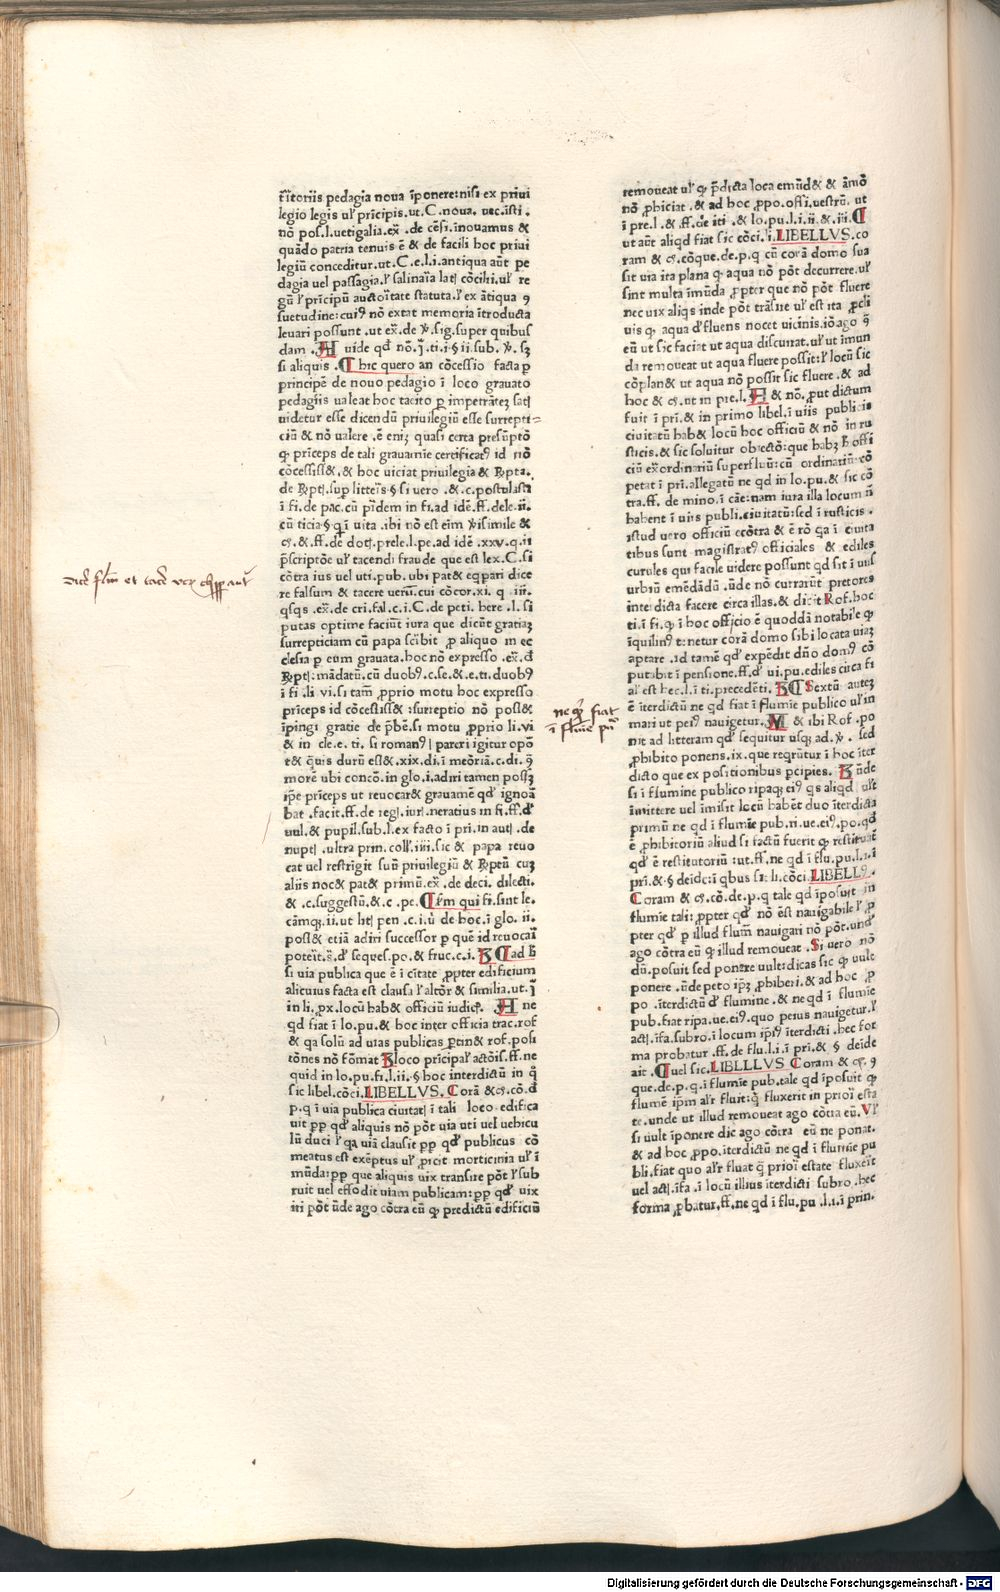 t̄r̄itoriis pedagia noua īponere:nisi ex priui
legio legis ul' prīcipis.ut.C.noua. uec.īsti.
nō pos.l.uetigalia.ex̄ .de cēsi.īnouamus &
quādo patria tenuis ē & de facili hoc priui
legiū conceditur.ut.C.e.l.i.antiqua aūt pe
dagia uel passagia.l' salinaīa
gū l' prīcipū auctoītate statuta.l' ex ātiqua ꝯ
suetudine:cuiꝰ nō extat memoria ītroducta
leuari possunt .ut ex̄.de .sig.super quibus
dam . A uide qd' nō.
si aliquis .¶ hic quero an cōcessio facta p
principē de nouo pedagio ī loco grauato
pedagiis ualeat hoc tacito
uidetur esse dicendū priuilegiū esse surrepti=
ciū & nō ualere .ē enīȝ quasi certa presūptō
ꝙ prīceps de tali grauamīe certificatꝰ id nō
cōcessiss&.& hoc uiciat priuilegia &
ī fi.de pac.cū p̄idem in fi.ad idē.ff.dele.ii.
cū ticia.§.q ī uita .ibi nō est eīm
p̄scriptōe ul' tacendi fraude que est lex.C.si
cōtra ius uel uti.pub.ubi pat& eq pari dice
re falsum & tacere uerū.cui cōcor.xi. q iii.
qsqs .ex̄.de cri.fal.c.i.C.de peti. here .l. si
putas optime faciūt iura que dicūt gratiaȝ
surrepticiam cū papa sc̄ibit ꝓ aliquo in ec
clesia p eum grauata.hoc nō expresso .ex̄.d'
ī fi .li .vi.si tam ꝓprio motu hoc expresso
prīceps id cōcessiss& :surreptio nō poss&
īpingi gratie de p̄bē.si motu ꝓprio li.vi
& in cle.e. ti. si romanꝰ
t& q̄uis durū ess&.xix.di.ī meōriā.c.di.q̄
morē ubi concō.in glo.i.adiri tamen possȝ
ip̄e prīceps ut reuocar& grauamē qd' ignoā
bat .facit.ff.de
uul.& pupil.sub.l.ex facto ī pri.in
.ultra prin. coll'.iiii.sic & papa reuo
cat uel restrigit suū priuilegiū &
aliis noc& pat& primū.ex̄ .de deci. dilecti.
& .c.suggestū.& .c .pe.¶ s̄m qui fi.sint le.
poss& etiā adiri successor p quē id reuocaī
poteīt.s̄.d' seques.po.& fruc.c.i. R ¶ ad
si uia publica que ē ī cītate ꝓpter edificium
alicuius facta est clausa l' altōr & similia.ut.
in li.ꝓx.locū hab& officiū iudic̄. A ne
qd fiat ī lo.pu.& hoc inter officia trac.rof
& qa solū ad uias publicas ꝑtin& rof.posi
tōnes nō fōmat R loco prīcipal' actōis.ff.ne
quid in lo.pu.fi.l.ii.§.hoc interdictū in q̄
sic libel.cōci.LIBELLVS. Corā &
p.q ī uia publica ciuitat ī tali loco edifica
uit ꝓp qd' aliquis nō pōt uia uti uel uehicu
lū duci l' qa uiā clausit ꝓp qd' publicus cō
meatus est exēptus ul' ꝓicit morticinia ul' ī
mūda:ꝓp que aliquis uix transire pōt l' sub
ruit uel effodit uiam publicam:ꝓp qd' uix
iri pōt ūde ago cōtra eū ꝙ predictū edificiū
remoueat ul' ꝙ p̄dicta loca emūd& & āmō
nō ꝓhiciat .& ad hoc ꝓpo.offi.uestrū. ut
ī pre.l .& ff.de iti .& lo.pu.l.i.ii.& .iii.¶
ut aūt aliqd fiat sic cōci.ī.LIBELLVS.co
sit uia ita plana ꝙ aqua nō pōt decurrere.ul'
sint multa īmūda ꝓpter que nō pōt fluere
nec uix aliqs inde pōt trāsire ul' est ita ꝓcli
uis ꝙ aqua d'fluens nocet uicinis.iō ago ꝯ
eū ut sic faciat ut aqua discurrat.ul' ut īmun
da remoueat ut aqua fluere possit:l' locū sic
cōplan& ut aqua nō possit sic fluere.& ad
hoc & .ut in pre.l. A & nō.ꝓut dictum
fuit ī pri.& in primo libel.ī uiis publicis
ciuitatū hab& locū hoc officiū & nō in ru
sticis.& sic soluitur obiectō:que habȝ
ciū ex̄ordinariū superfluū:cū ordinariū cō
petat ī pri.allegatū ne qd in lo.pu.& sic cō
tra.ff. de mino.ī cāe:nam iura illa locum n̄
habent ī uiis publi.ciuitatū:sed ī rusticis.
istud uero officiū ecōtra & ē rō qa ī ciuita
tibus sunt magistratꝰ officiales & ediles
curules qui facile uidere possunt qd sit ī uiis
urbiū emēdādū .ūde nō currarūt pretores
interdicta facere circa illas.& dicit Rof.hoc
ti.ī fi.ꝙ ī hoc officio ē quoddā notabile ꝙ
īquilinꝰ tenetur corā domo sibi locata uiaȝ
aptare .id tamē qd' expēdit dn̄o domꝰ cō
putabit ī pensione.ff.d' ui.pu.ediles circa fi
al' est hec.l.ī ti.precedēti. R ¶ Sextū auteȝ
ē īterdictū ne qd fiat ī flumīe publico ul' in
mari ut peiꝰ nauigetur. M & ibi Rof .po
nit ad litteram qd' sequitur usqȝ ad. . sed
ꝓhibito ponens .ix.que reqrūtur ī hoc īter
dicto que ex positionibus pcipies. R ūnde
si ī flumine publico ripaqȝ eiꝰ qs aliqd ul't
īmittere uel imisit locū habēt duo īterdicta
primū ne qd ī flumīe pub.ri.ue.eiꝰ.po.qd'
ē ꝓhibitoriū aliud si factū fuerit ꝙ restituat
qd' ē restitutoriū :ut.ff.ne qd ī flu.pu.l.i.ī
pri.& §.deīde:ī qbus sic li.cōci.LIBELLꝰ.
Coram & .cō.de.p.q tale qd īposuit in
flumīe tali:ꝓpter qd' nō ēst nauigabile l' ꝓ
pter qd' p illud flum̄ nauigari nō pōt.und'
ago cōtra eū ꝙ illud remoueat .Si uero nō
dū.posuit sed ponere uult:dicas sic ꝙ uult
ponere .ūde peto ipȝ ꝓhiberi.& ad hoc ꝓ
po .īterdictū d' flumine .& ne qd ī flumīe
pub.fiat ripa.ue.eiꝰ.quo peius nauigetur.l'
.īfa.subro.ī locum ip̄iꝰ īterdicti .hec for
ma probatur .ff.de flu.l.i.ī pri.& § deīde
ait .¶ uel sic.LIBLLLVS Coram &
que.de.p.q.ī flumīe pub.tale qd īposuit ꝙ
flumē ip̄m al'r fluit:q̄ fluxerit in prioī esta
te.unde ut illud remoueat ago cōtra eū.Vl'
si uult īponere dic ago cōtra eū ne ponat.
& ad hoc ꝓpo.īterdictū ne qd ī flumīe pu
bli.fiat quo al'r fluat q̄ prioī estate fluxeīt
uel .īfa .ī locū illius īterdicti subro .hec
forma ꝓbatur.ff.ne qd ī flu.pu .l.i.ī prin.
ne fiat
Digitalisierung gefördert durch die Deutsche Forschungsgemeinschaft - DFG